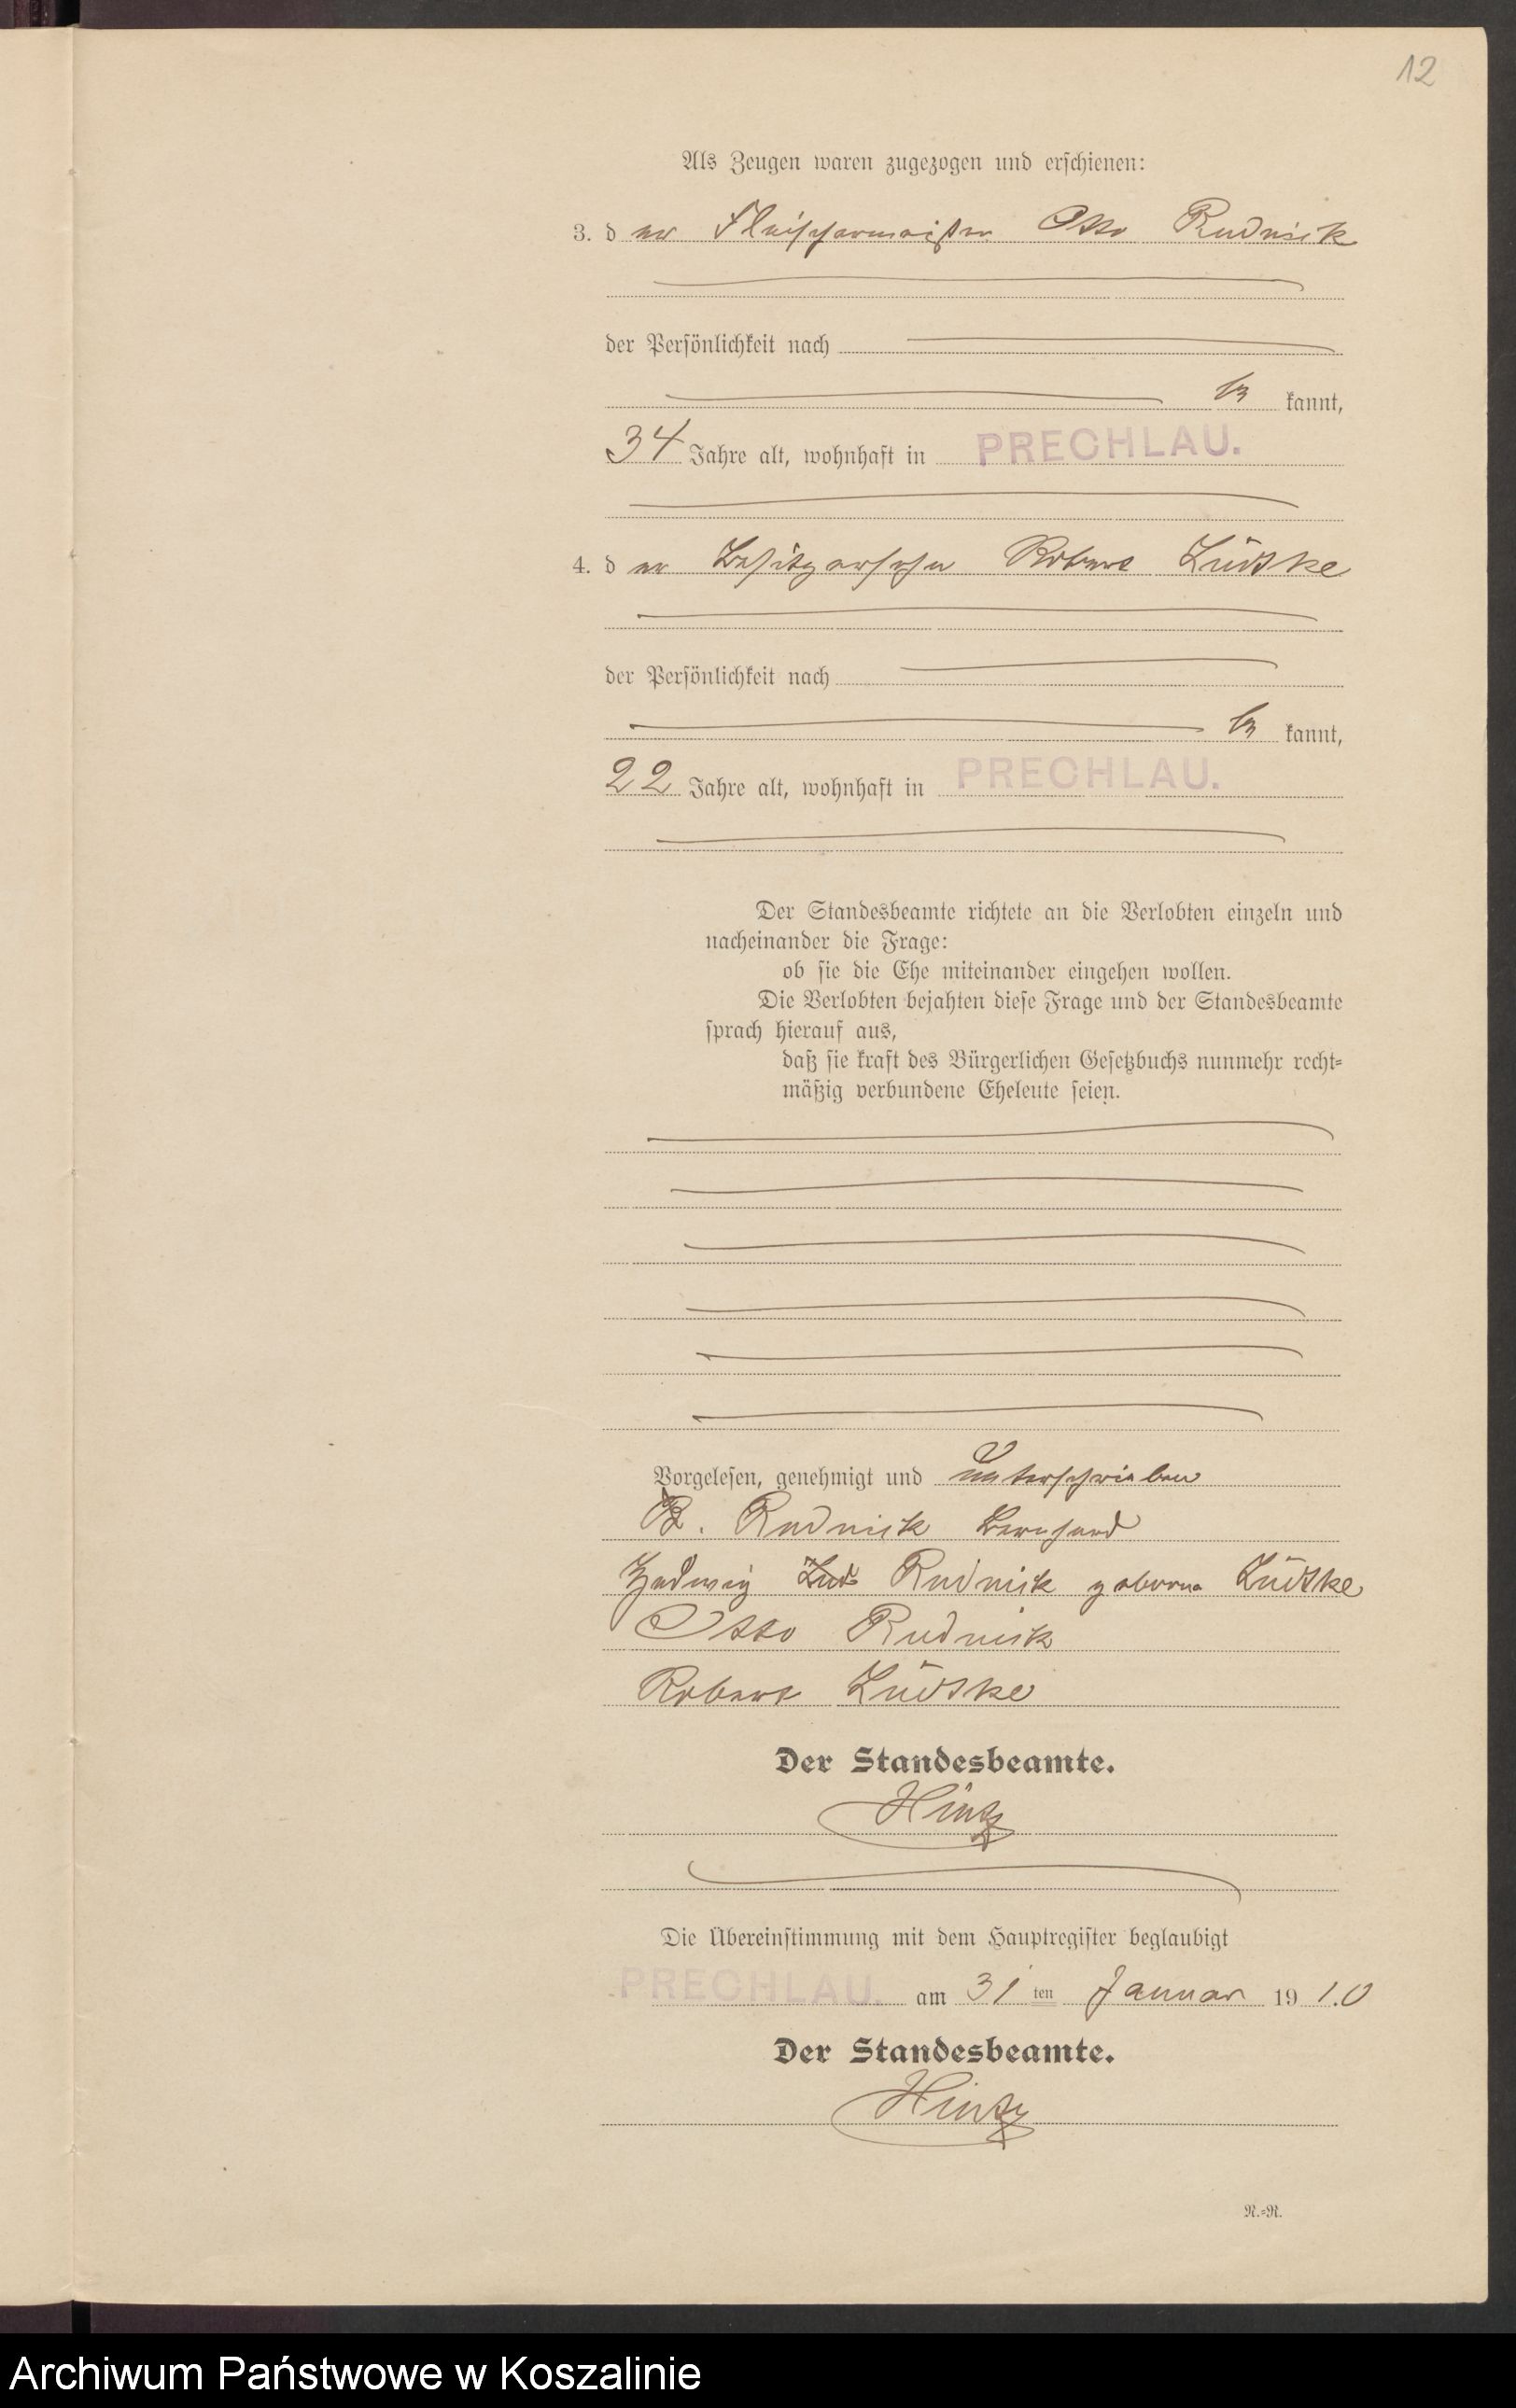 12
Als Zeugen waren zugezogen und erschienen:
3. der Fleischermeister Otto Rudnick
der Persönlichkeit nach
be kannt,
34 Jahre alt, wohnhaft in PRECHLAU.
4. der Besitzersohn Robert Lüdtke
der Persönlichkeit nach
be kannt,
22 Jahre alt, wohnhaft in PRECHLAU.
Der Standesbeamte richtete an die Verlobten einzeln und
nacheinander die Frage:
ob sie die Ehe miteinander eingehen wollen.
Die Verlobten bejahten diese Frage und der Standesbeamte
sprach hierauf aus,
daß sie kraft des Bürgerlichen Gesetzbuchs nunmehr recht-
mäßig verbundene Eheleute seien.
Vorgelesen, genehmigt und Unterschrieben
Rudnick Bernhard
Hedwig Rudnick geborne Lüdtke
Otto Rudnick
Robert Lüdtke
Der Standesbeamte.
Hintz
Die Übereinstimmung mit dem Hauptregister beglaubigt
PRECHLAU. am 31 ten Januar 19 10
Der Standesbeamte.
Hintz
N.-R.
Archiwum Państwowe w Koszalinie